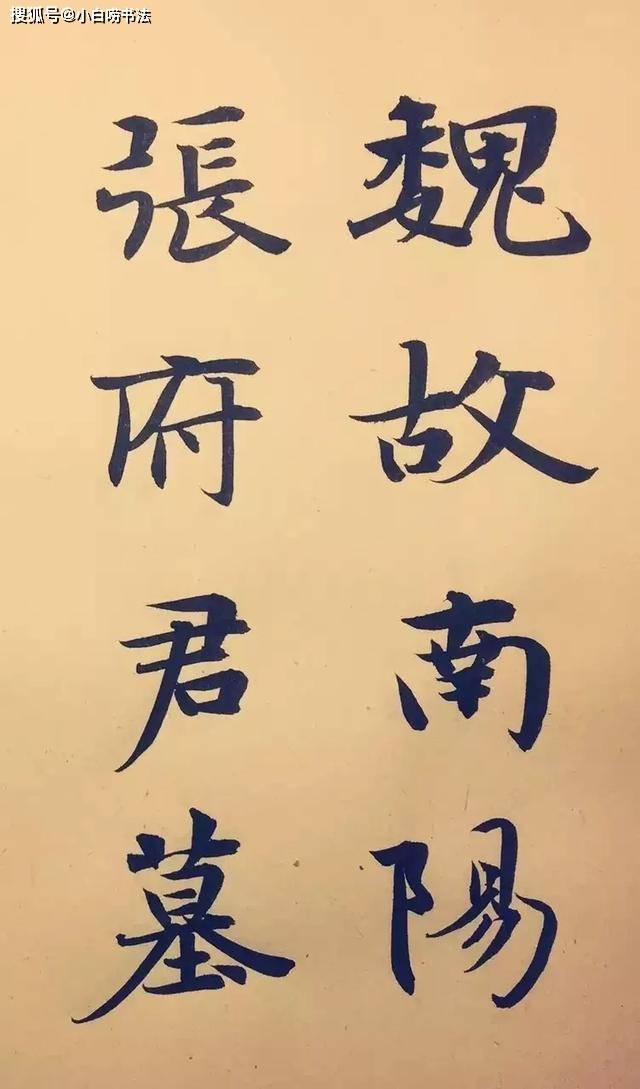 搜狐号@小白唠书法
魏故南陽
張府君墓